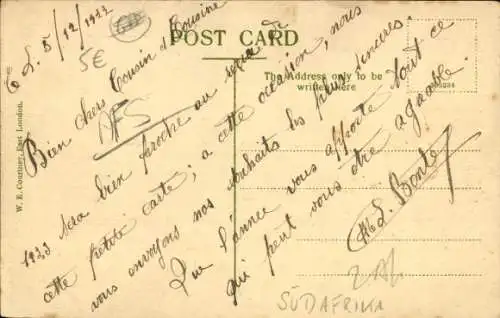 E L. 5/12/1922
5E
POST CARD
The Address only to be
written here
W. E. Courtney, East London.
AFS
Bien chers Cousin et Cousine
1923 sera bien proche au reçu de
cette petite carte; a cette occasion, nous
vous envoyons nos souhaits les plus sincères.
Que l'année vous apporte tout ce
qui peut vous être agréable.
L. Bonte
SÜDAFRIKA